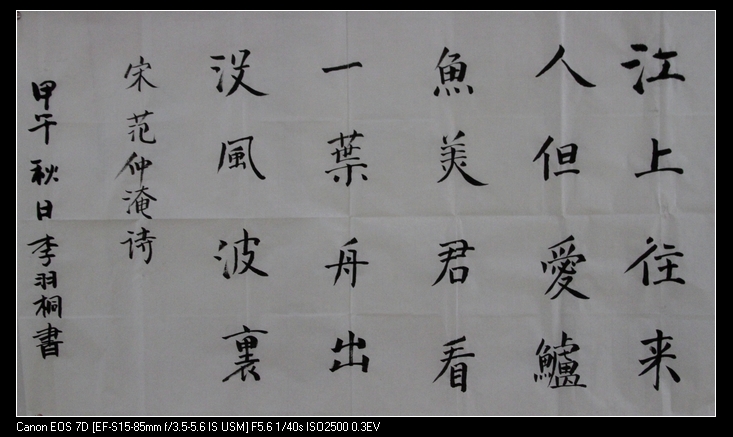 江上往来
人但愛鱸
魚美君看
一葉舟出
没風波裏
宋范仲淹诗
甲午秋日李羽桐書
Canon EOS 7D [EF-S15-85mm f/3.5-5.6 IS USM] F5.6 1/40s ISO2500 0.3EV